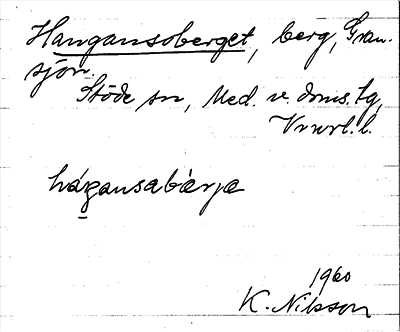 Hangansoberget, berg, Gran-
sjön.
Stöde sn, Med. v. doms. tg,
Vnrrl. l.
hágansabàrja
1960
K. Nilsson